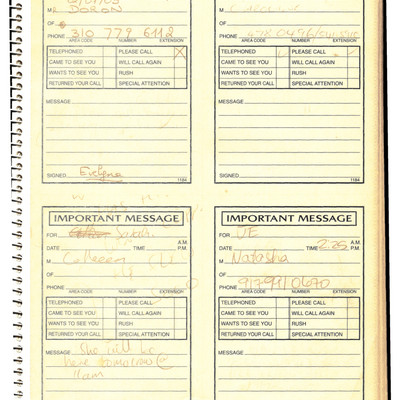 MR DORON
OF
PHONE 310 779 6112
AREA CODE NUMBER EXTENSION
TELEPHONED PLEASE CALL X
CAME TO SEE YOU WILL CALL AGAIN
WANTS TO SEE YOU RUSH
RETURNED YOUR CALL SPECIAL ATTENTION
MESSAGE
SIGNED Evelyne
1184
M
OF
PHONE
AREA CODE NUMBER EXTENSION
TELEPHONED PLEASE CALL
CAME TO SEE YOU WILL CALL AGAIN
WANTS TO SEE YOU RUSH
RETURNED YOUR CALL SPECIAL ATTENTION
MESSAGE
SIGNED
1184
IMPORTANT MESSAGE
FOR
DATE TIME A.M. P.M.
M Colleen
OF
PHONE
AREA CODE NUMBER EXTENSION
TELEPHONED PLEASE CALL
CAME TO SEE YOU WILL CALL AGAIN
WANTS TO SEE YOU RUSH
RETURNED YOUR CALL SPECIAL ATTENTION
MESSAGE She will be
here tomorrow
11am
IMPORTANT MESSAGE
FOR JE
DATE TIME 2:25 A.M. P.M.
M Natasha
OF
PHONE
AREA CODE NUMBER EXTENSION
TELEPHONED PLEASE CALL
CAME TO SEE YOU WILL CALL AGAIN
WANTS TO SEE YOU RUSH
RETURNED YOUR CALL SPECIAL ATTENTION
MESSAGE